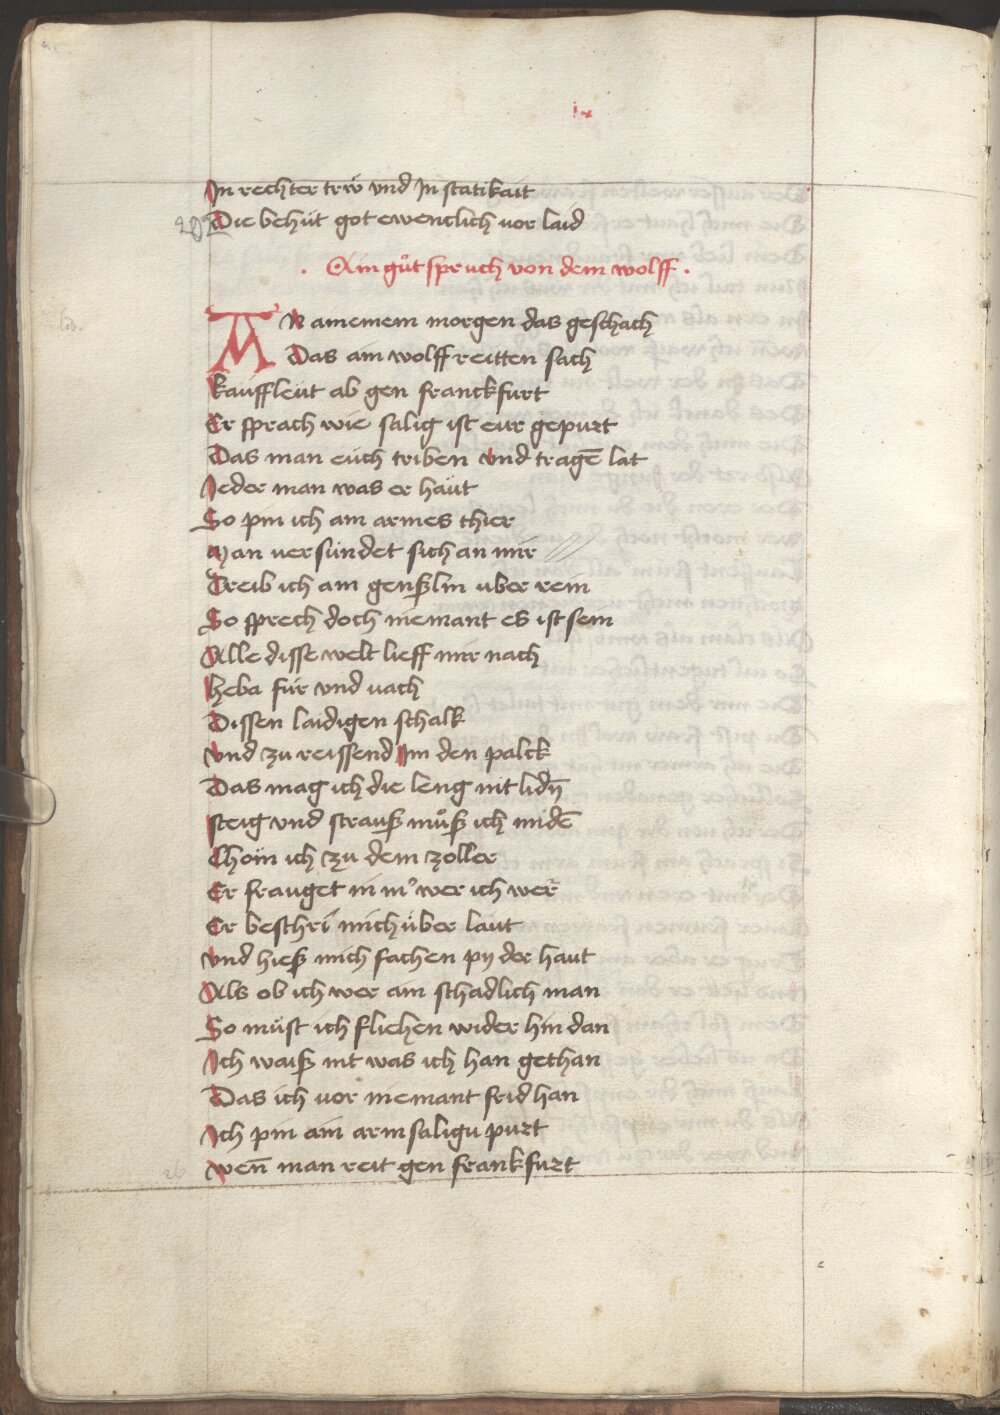 In rechter trw vnd In statikait
202
Die behüt got ewenclich vor laid
· Ain gůt spruch von dem wolff ·
AN ainem morgen das geschach
Das ain wolff reitten sach
kauffleüt ab gen franckfurt
Er sprach wie salig ist eur gepurt
Das man euch triben vnd tragē lat
Ieder man was er haüt
So pin ich ain armes thier
Man versündet sich an mir
Treib ich ain genßlin uber rein
So sprech doch niemant es ist sein
Alle disse welt lieff mir nach
heba für vnd nach
Dissen laidigen schalk
vnd zu reissend Im den palck
Das mag ich die leng nit lidn̄
steig vnd strauß můß ich midē
Chom ich zu dem zoller
Er frauget in mʼ wer ich wer
Er beschri mich über laut
vnd hieß mich fachen py der haut
Als ob ich wer ain schadlich man
So müst ich fliehen wider hin dan
Ich waiß nit was ich han gethan
Das ich vor niemant frid han
Ich pin ain arm saligu purt
wen̄ man reit gen frankfurt